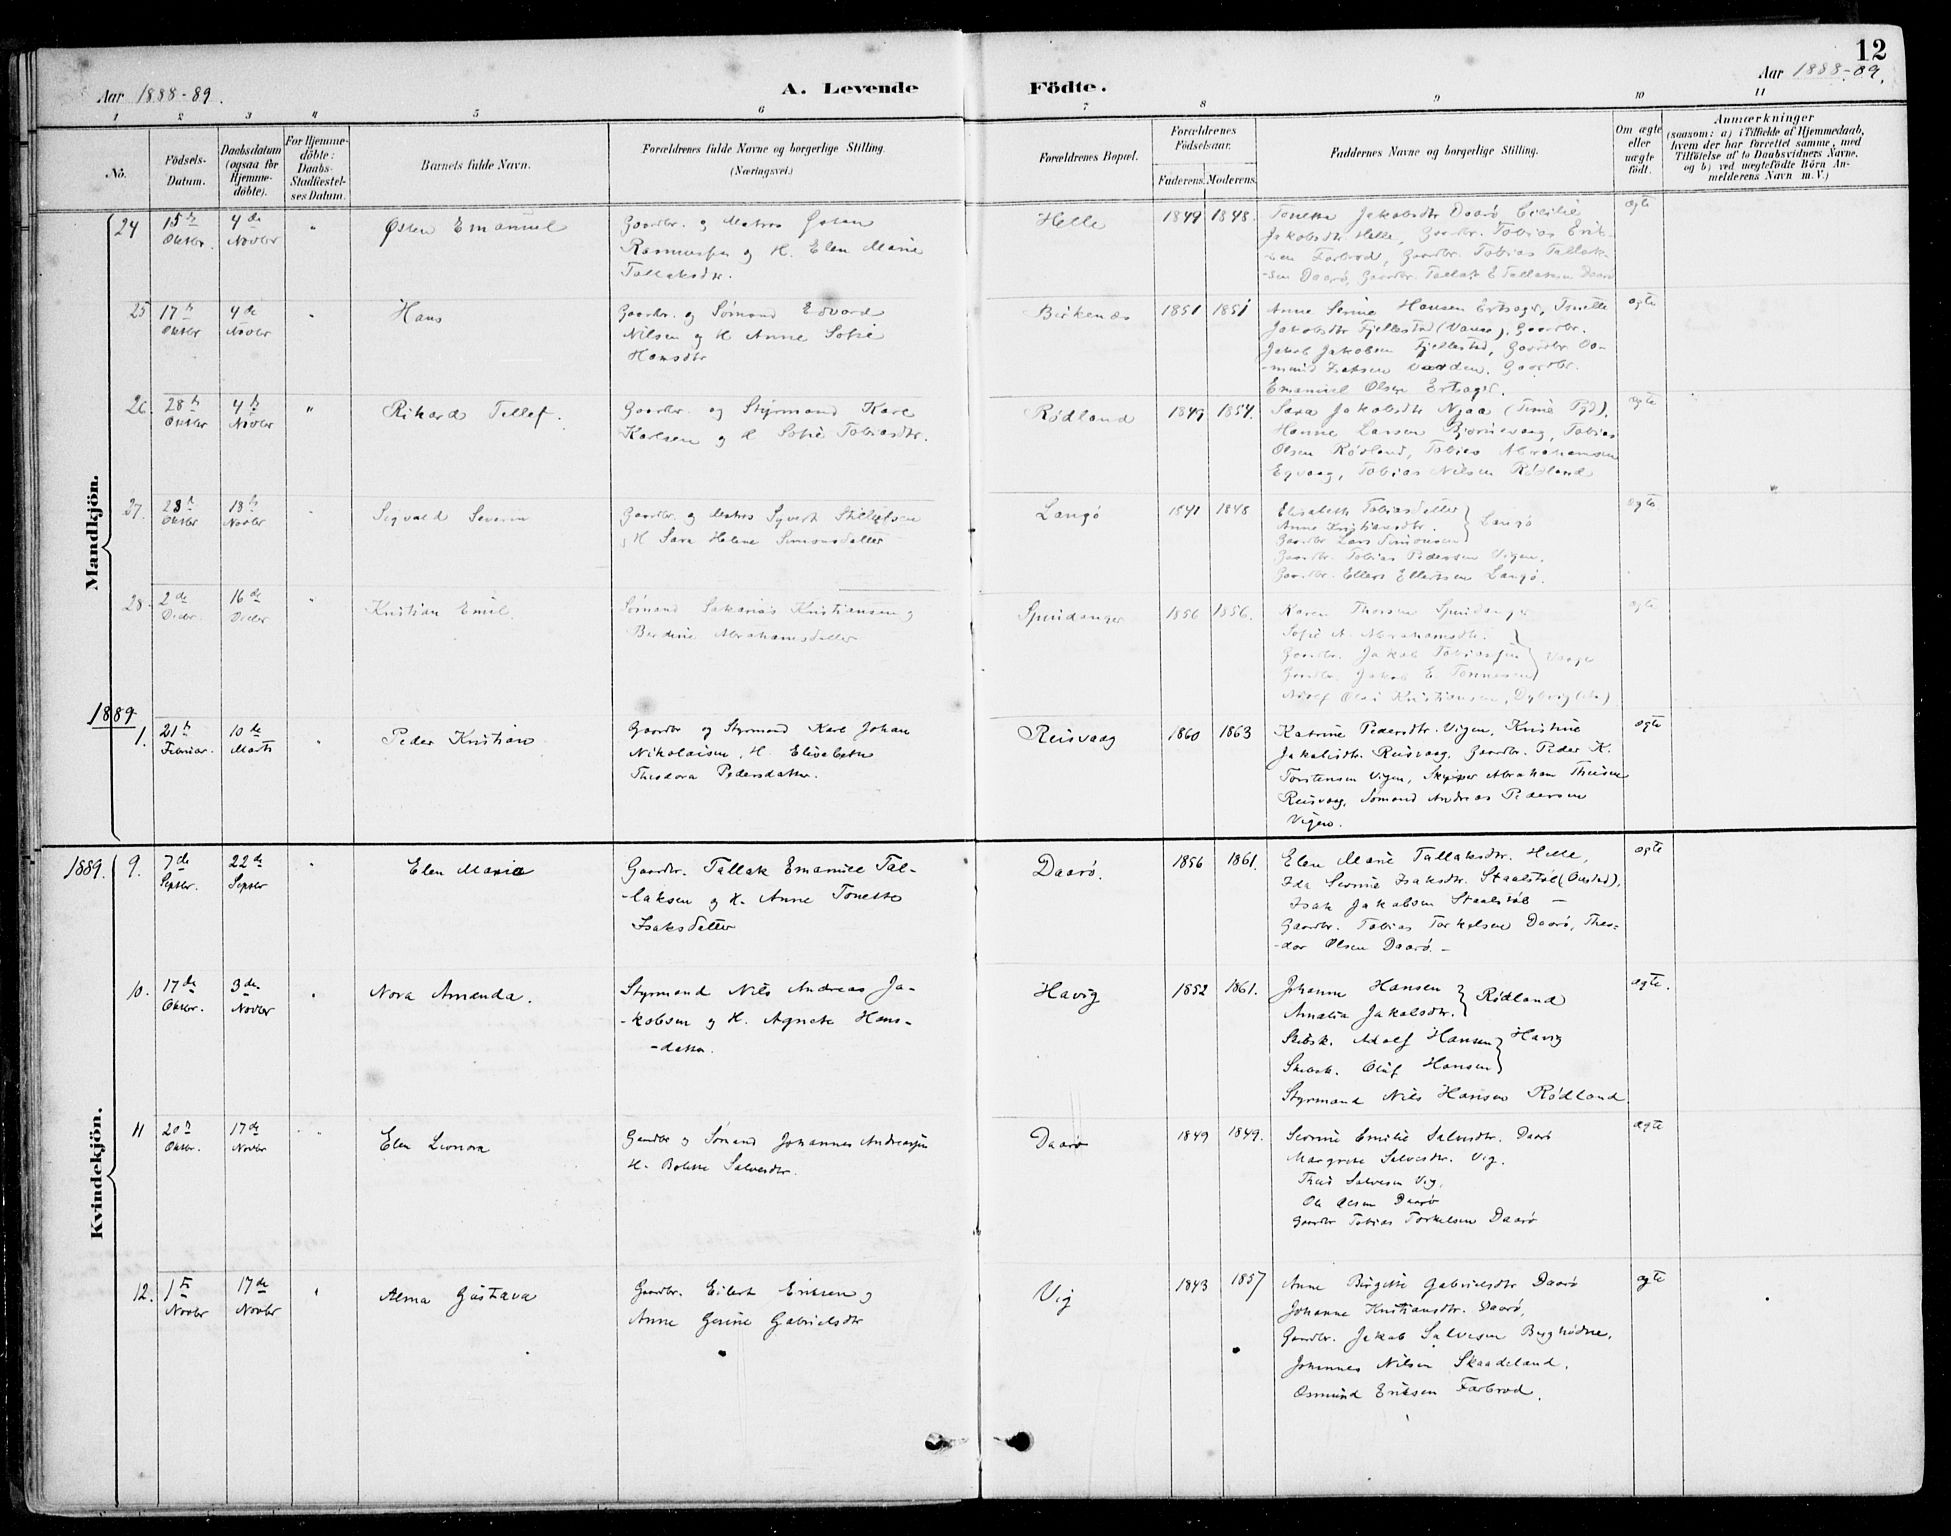 12
Aar 1888-89.
A. Levende
Födte.
Aar 1888-89.
1 2 3 4 5 6 7 8 9 10 11
No.
Födsels-
Datum.
Daabsdatum
(ogsaa for
Hjemme-
döbte).
For Hjemme-
döbte:
Daabs-
Stadfæstel-
ses Datum.
Barnets fulde Navn.
Forældrenes fulde Navne og borgerlige Stilling.
(Næringsvei.)
Forældrenes Bopæl.
Forældrenes
Födselsaar.
Faderens.
Moderens.
Faddernes Navne og borgerlige Stilling.
Om ægte
eller
uægte
födt.
Anmærkninger
(saasom: a) i Tilfælde af Hjemmedaab,
hvem der har forrettet samme, med
Tilföielse af to Daabsvidners Navne,
og b) ved uægtefödte Börn An-
melderens Navn m. V.)
Mandkjön.
24
15de
Oktbr.
4de
Novbr
"
Østen Emanuel
Gaardbr. og Matros Østen
Rasmussen og H. Elen Marie
Tallaksdtr.
Helle
1849
1848.
Tonette Jakobsdtr Daarø Cecilie
Jakobsdtr Helle, Gaardbr. Tobias Erik-
sen Farbrod, Gaardbr. Tobias Tallak-
-sen Daarø, Gaardbr. Tallak E Tallaksen Daarø
ægte
25
17de
Oktbr
4de
Novbr
"
Hans
Gaardbr. og Sømand Edvard
Nilsen og H Anne Sofie
Hansdtr
Birkenæs
1851
1851
Anne Serine Hansen Ertsager, Tonette
Jakobsdtr Fjellestad (Vanse), Gaardbr.
Jakob Jakobsen Fjellestad, Gaardbr. Os-
-mund Isaksen Varden, Gaardbr.
Emanuel Olsen Ertsager.
ægte
26.
28de
Oktbr
4de
Novbr
"
Rikard Tellef.
Gaardbr. og Styrmand Karl
Karlsen og H Sofie Tobiasdtr.
Rødland
1849
1854.
Sara Jakobsdtr Njaa (Time Pgd).
Hanne Larsen Bjørnevaag, Tobias
Olsen Rødland, Tobias Abrahamsen
Egvaag, Tobias Nilsen Rødland
ægte
27.
23de
Oktbr
18de
Novbr
"
Sigvald Severin
Gaardbr. og Matros Syvert
og H Sara Helene Simonsdatter
Langø
1841
1848
Elisabeth Tobiasdatter
Anne Kristiansdtr.
Gaardbr Lars Simonsen
Langø
Gaardbr. Tobias Pedersen Vigen.
Gaardbr. Ellert Ellertsen Langø.
ægte
28.
2de
Decbr.
16de
Decbr
"
Kristian Emil.
Sømand Sakarias Kristiansen og
Berdine Abrahamsdatter
Spindanger
1856
1856.
Karen Thorsen Spindanger
Sofie A. Abrahamsdtr.
Gaardbr. Jakob Tobiassen
Vaage
Gaardbr. Jakob E. Tønnesen
Adolf Olai Kristiansen,
ægte
1889
1.
21de
Februar.
10de
Marts
"
Peder Kristian
Gaardbr og Styrmand Karl Johan
Nikolaisen, H. Elisabeth
Theodora Pedersdatter.
Reisvaag
1860
1863
Katrine Pedersdtr. Vigen, Kristine
Jakobsdtr. Reisvaag, Gaardbr. Peder K.
Torstensen Vigen, Skipper Abraham Theisen
Reisvaag, Sømand Andreas Pedersen
Vigen.
ægte
Kvindekjön.
1889.
9.
7de
Septbr.
22de
Septbr
"
Elen Maria
Gaardbr. Tallak Emanuel Tal-
laksen og H. Anne Tonette
Isaksdatter
Daarø.
1856
1861.
Elen Marie Tallaksdtr. Helle,
Ida Serine Isaksdtr. Staalstøl (Oustad),
Isak Jakobsen Staalstøl —
Gaardbr. Tobias Torkelsen Daarø, Theo-
-dor Olsen Daarø. —
ægte
10.
17de
Oktbr.
3de
Novbr
"
Nora Amanda.
Styrmand Nils Andreas Ja-
-kobsen og H. Agnete Hans-
-datter.
Havig
1852
1861.
Johanne Hansen
Amalia Jakobsdtr.
Rødland
Skibsk. Adolf Hansen
Skibsk. Oluf Hansen
Havig
Styrmand Nils Hansen Rødland
ægte.
11
20de
Oktbr.
17de
Novbr
"
Elen Leonora
Gaardbr og Sømand Johannes Andreassen
H. Bolette Salvesdtr.
Daarø
1849
1849.
Serine Emilie Salvesdtr. Daarø
Margrete Salvesdtr. Vig.
Theis Salvesen Vig,
Ole Olsen Daarø
Gaardbr Tobias Torkelsen Daarø
ægte
12.
1ste
Novbr
17de
Novbr
"
Alma Gustava
Gaardbr. Eilert Eriksen og
Anne Gurine Gabrielsdtr
Vig
1843
1857
Anne Birgitte Gabrielsdtr Daarø
Johanne Kristiansdtr. Daarø,
Gaardbr. Jakob Salvesen Berghødne,
Johannes Nilsen Skaadeland,
Osmund Eriksen Farbrod.
ægte